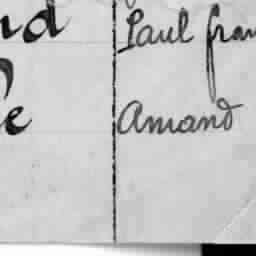 nd Paul fran
e Amand